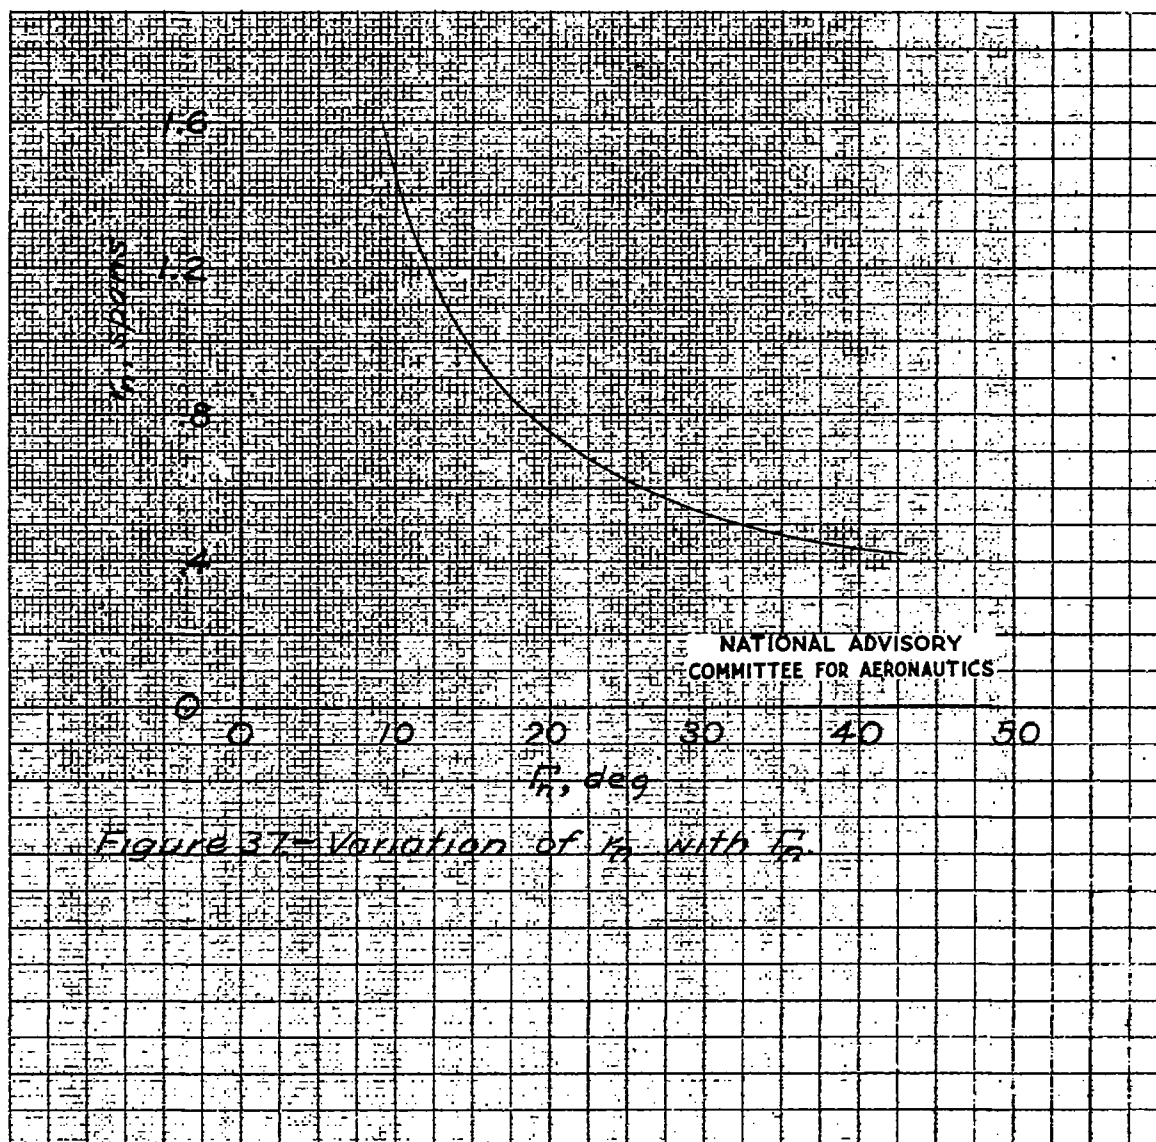 1.6
1.2
.8
.4
0
rₙ, spans
NATIONAL ADVISORY
COMMITTEE FOR AERONAUTICS
0 10 20 30 40 50
Γₙ, deg
Figure 37.- Variation of rₙ with Γₙ.